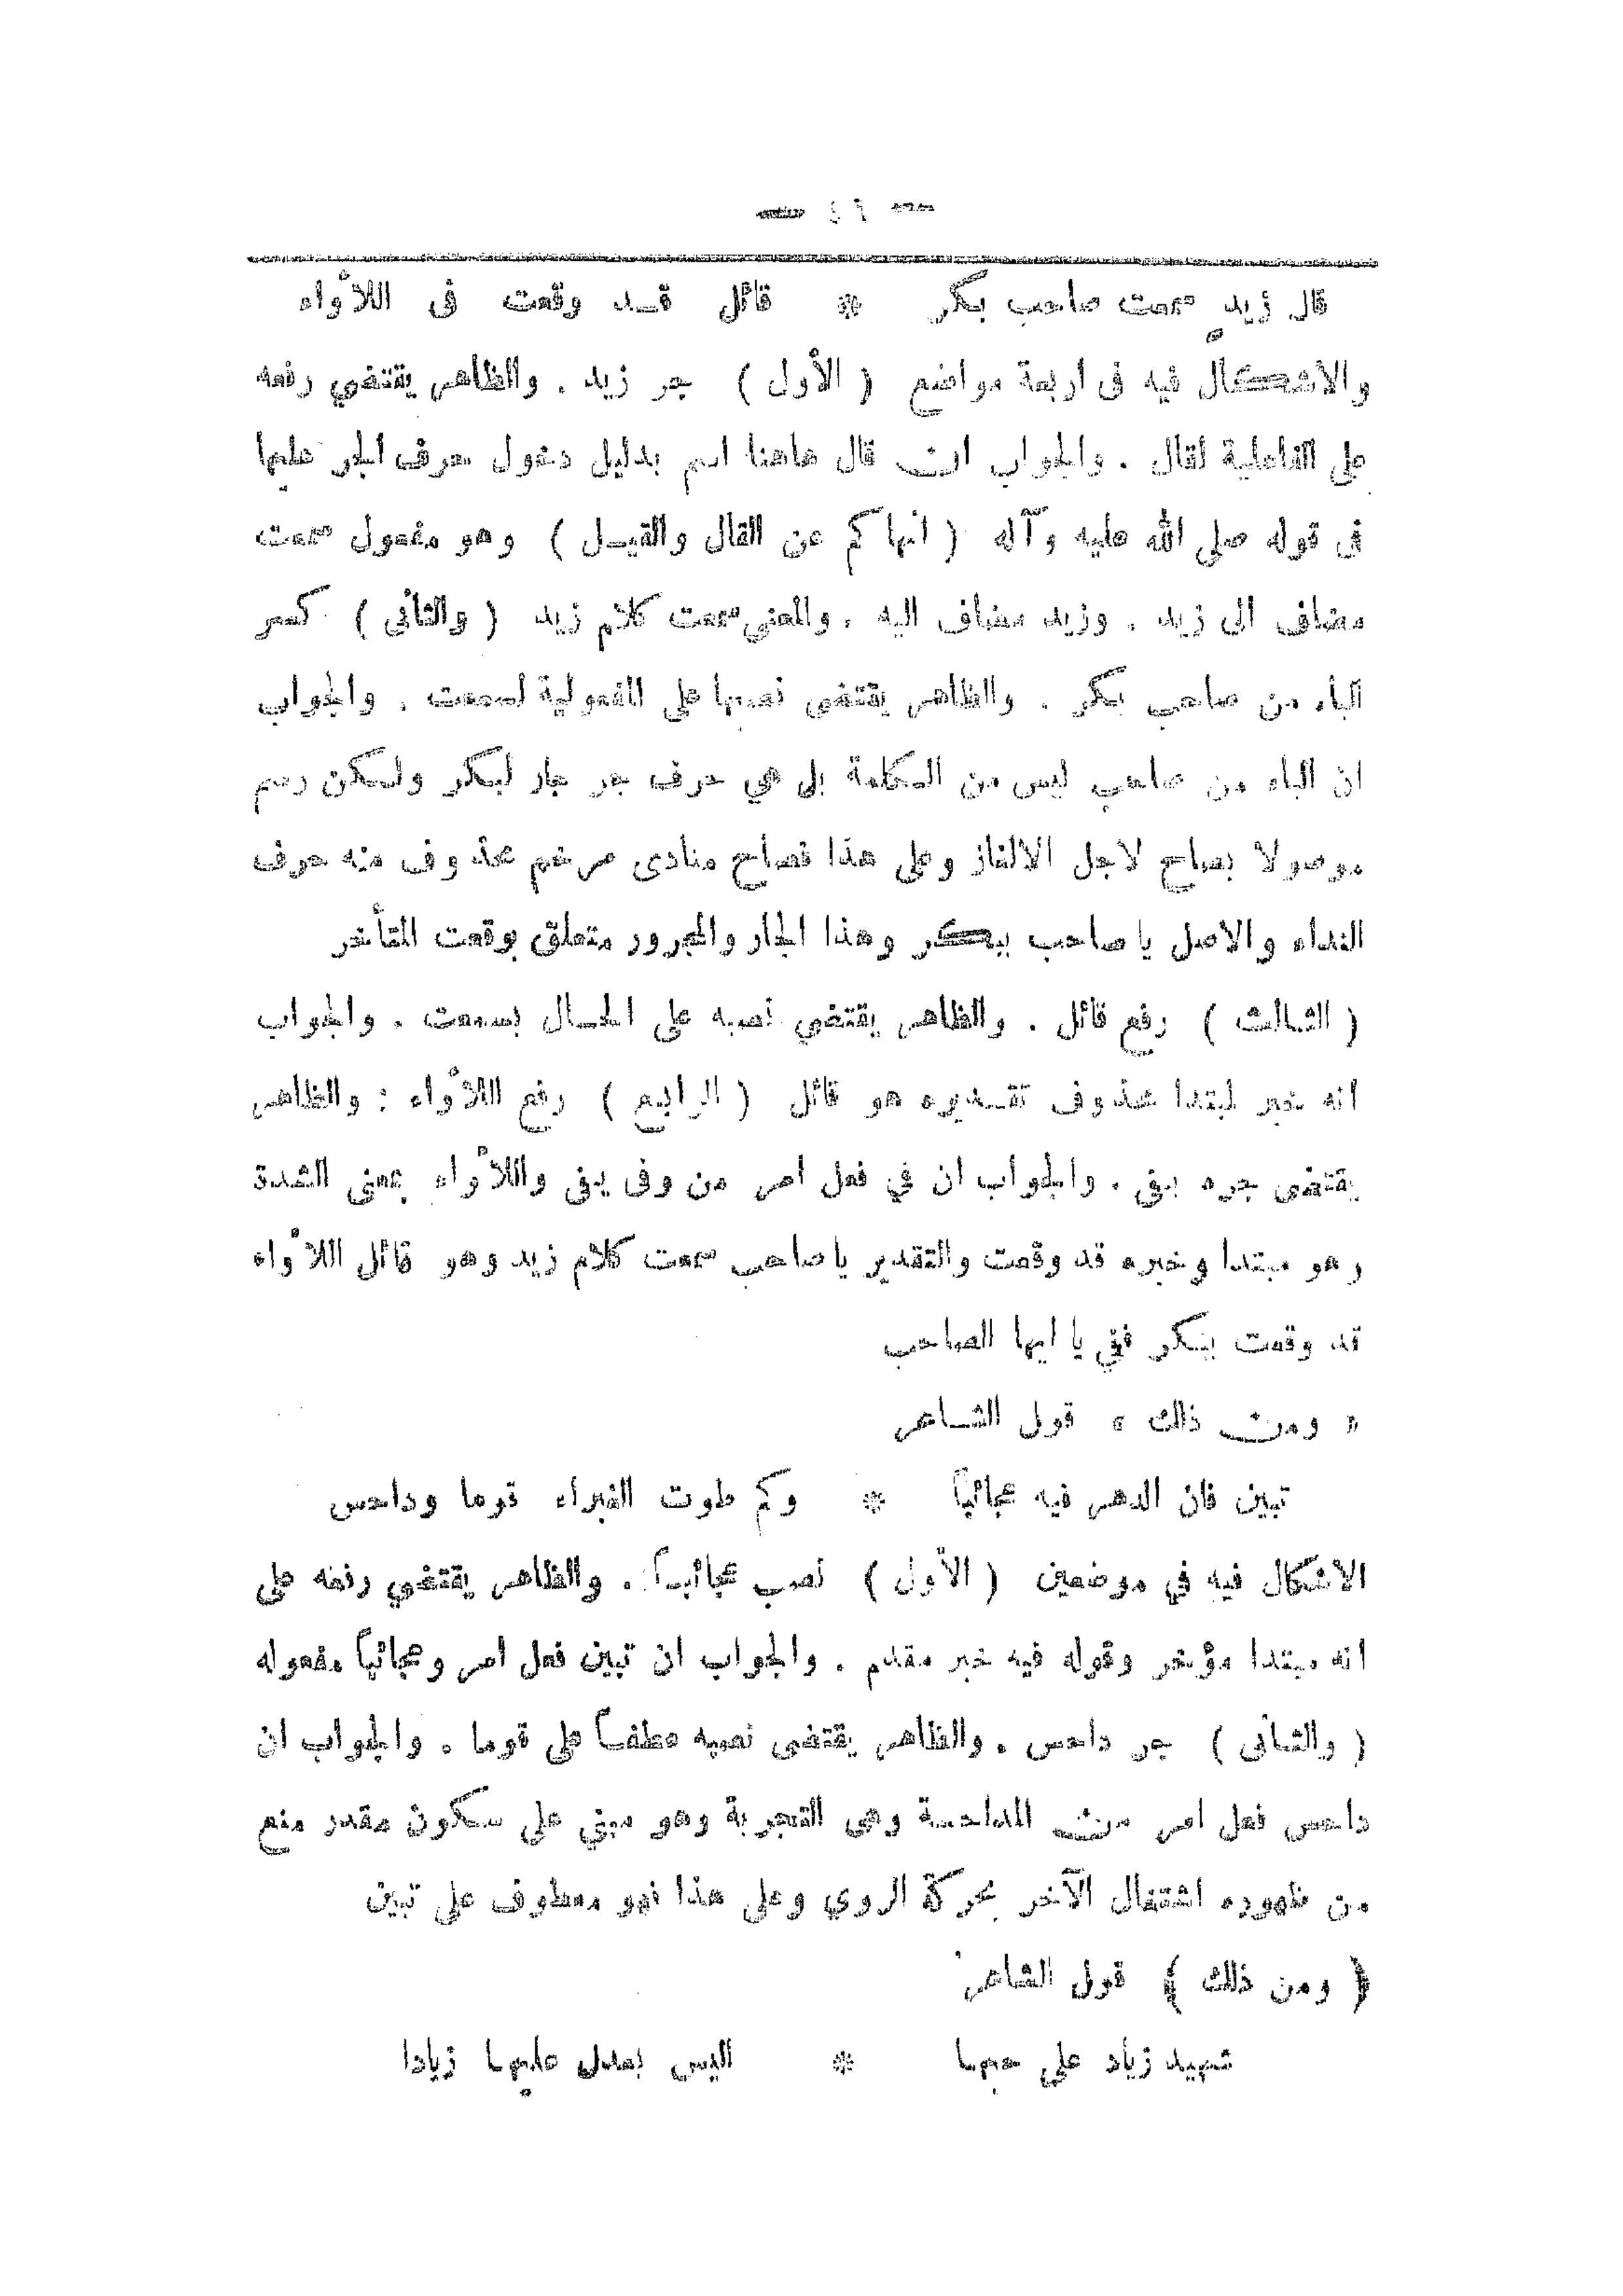 — ٤٦ —
قال زيدٍ سمعت صاحب بكر * قائل قد وقعت فى اللأواء
والاشكال فيه فى اربعة مواضع ( الأول ) جر زيد . والظاهر يقتضي رفعه
على الفاعلية لقال . والجواب ان قال هاهنا اسم بدليل دخول حرف الجر عليها
فى قوله صلى الله عليه وآله ( انهاكم عن القال والقيل ) وهو مفعول سمعت
مضاف الى زيد . وزيد مضاف اليه . والمعنى سمعت كلام زيد ( والثانى ) كسر
الباء من صاحب بكر . والظاهر يقتضى نصبها على المفعولية لسمعت . والجواب
ان الباء من صاحب ليس من الكلمة بل هي حرف جر جار لبكر ولكن رسم
موصولا بصاح لاجل الالغاز وعلى هذا فصاح منادى مرخم محذوف منه حرف
النداء والاصل يا صاحب ببكر وهذا الجار والمجرور متعلق بوقعت المتأخر
( الثالث ) رفع قائل . والظاهر يقتضي نصبه على الحال بسمعت . والجواب
انه خبر لمبتدا محذوف تقديره هو قائل ( الرابع ) رفع اللأواء : والظاهر
يقتضى جره بفى . والجواب ان في فعل امر من وفى يفى واللأواء بمعنى الشدة
وهو مبتدا وخبره قد وقعت والتقدير يا صاحب سمعت كلام زيد وهو قائل اللأواء
قد وقعت ببكر ففي يا ايها الصاحب
« ومن ذلك » قول الشاعر
تبين فان الدهر فيه عجائباً * وكم طوت الغبراء قوما وداحس
الاشكال فيه في موضعين ( الأول ) نصب عجائباً . والظاهر يقتضي رفعه على
انه مبتدا مؤخر وقوله فيه خبر مقدم . والجواب ان تبين فعل امر وعجائباً مفعوله
( والثانى ) جر داحس . والظاهر يقتضى نصبه عطفاً على قوما . والجواب ان
داحس فعل امر من المداحسة وهى التجربة وهو مبني على سكون مقدر منع
من ظهوره اشتغال الآخر بحركة الروي وعلى هذا فهو معطوف على تبين
( ومن ذلك ) قول الشاعر
شهيد زياد على حبها * اليس بعدل عليها زيادا